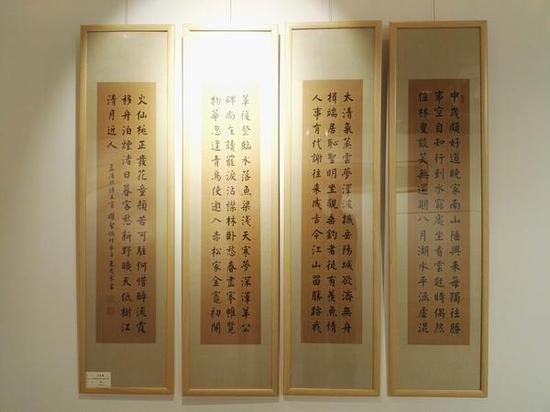 中歲頗好道晚家南山陲興來每獨往勝
事空自知行到水窮處坐看雲起時偶然
值林叟談笑無還期八月湖水平涵虛混
太清氣蒸雲夢澤波撼岳陽城欲濟無舟
楫端居恥聖明坐觀垂釣者徒有羨魚情
人事有代謝往來成古今江山留勝跡我
輩復登臨水落魚梁淺天寒夢澤深羊公
碑尚在讀罷淚沾襟林臥愁春盡搴帷覽
物華忽逢青鳥使邀入赤松家金竈初開
火仙桃正發花童顏若可駐何惜醉流霞
移舟泊煙渚日暮客愁新野曠天低樹江
清月近人